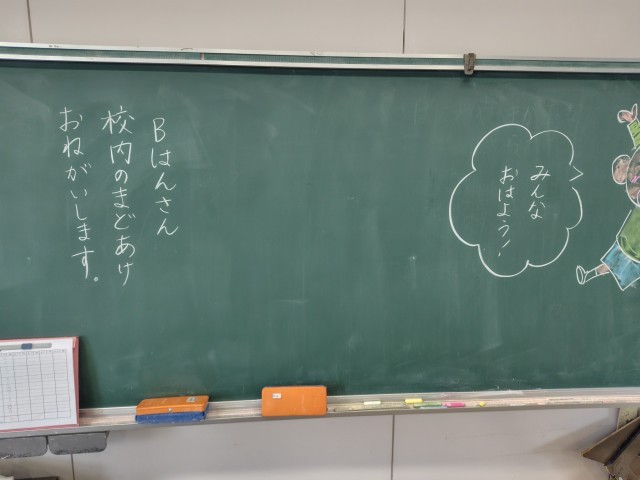 みんな
おはよう!
Bはんさん
校内のまどあけ
おねがいします。